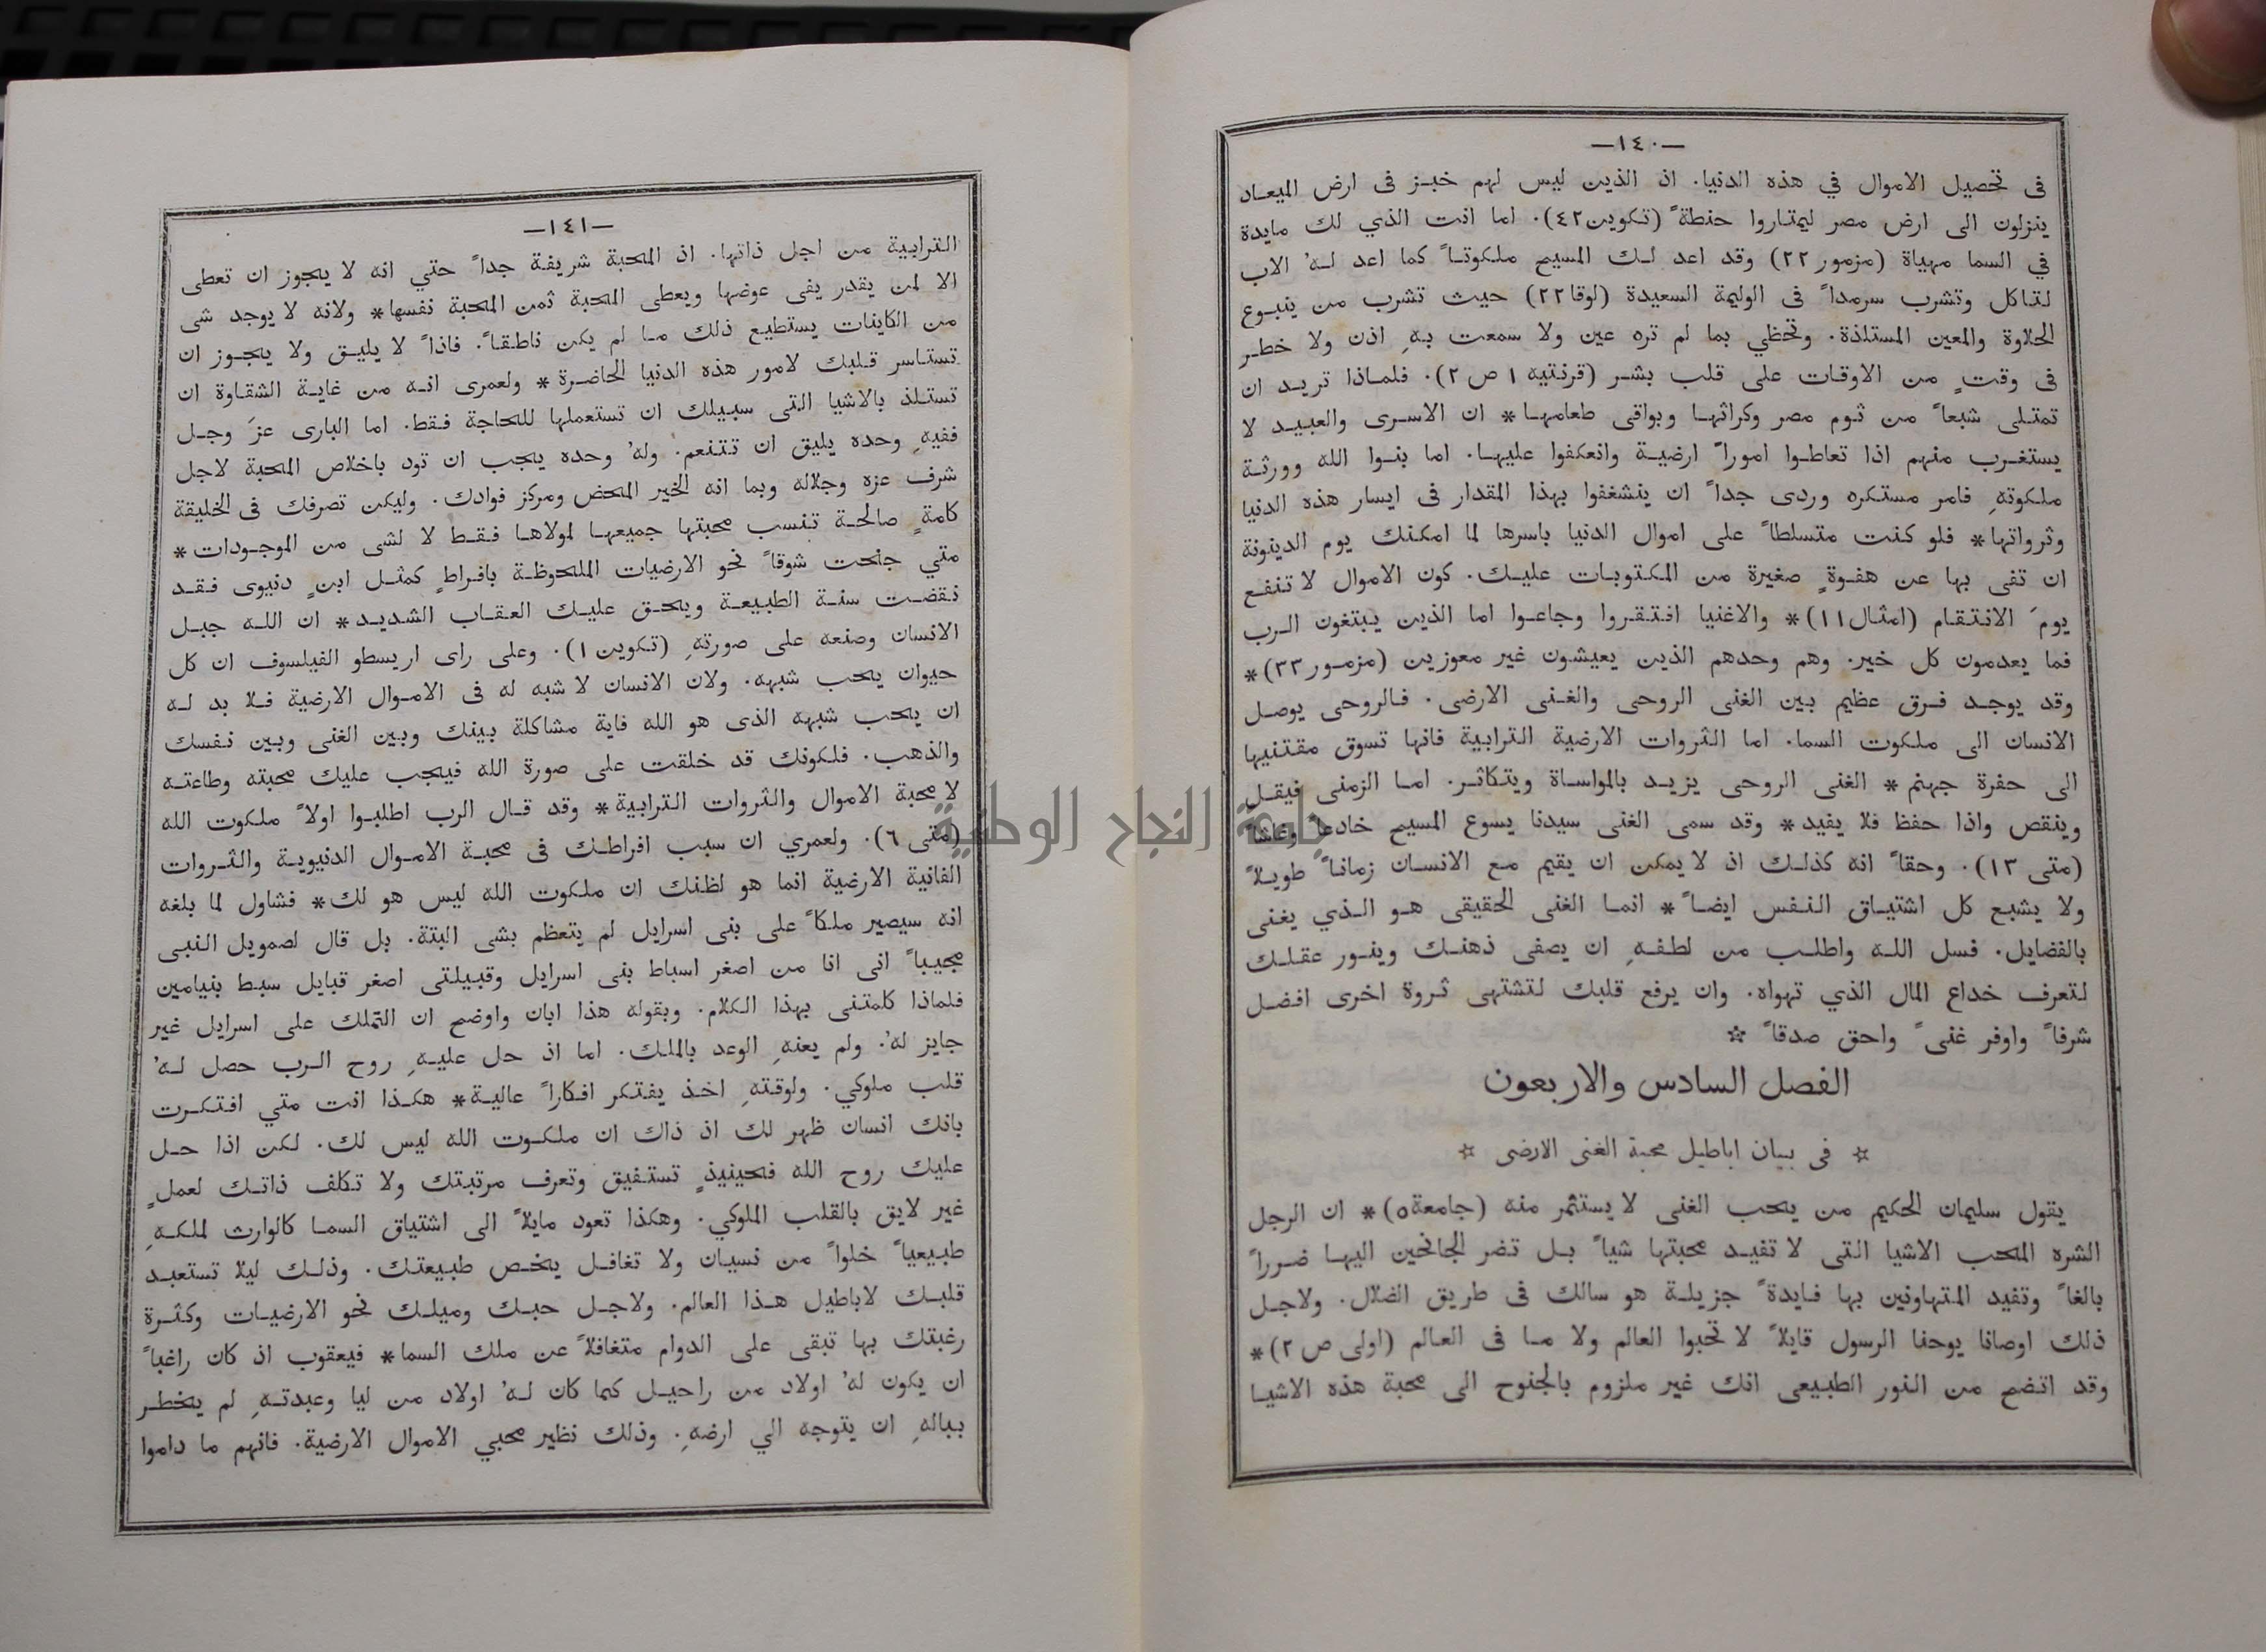 —١٤٠—
فى تحصيل الاموال في هذه الدنيا. اذ الذين ليس لهم خبز فى ارض الميعاد
ينزلون الى ارض مصر ليمتاروا حنطةً (تكوين٤٢). اما انت الذي لك مايدة
في السما مهياة (مزمور٢٢) وقد اعد لك المسيح ملكوتاً كما اعد لهُ الاب
لتاكل وتشرب سرمداً فى الوليمة السعيدة (لوقا٢٢) حيث تشرب من ينبوع
الحلاوة والمعين المستلذة. وتحظي بما لم تره عين ولا سمعت بهِ اذن ولا خطر
فى وقتٍ من الاوقات على قلب بشر (قرنتيه ١ ص ٢). فلماذا تريد ان
تمتلى شبعاً من ثوم مصر وكراثها وبواقى طعامها* ان الاسرى والعبيد لا
يستغرب منهم اذا تعاطوا اموراً ارضية وانعكفوا عليها. اما بنوا الله وورثة
ملكوتهِ فامر مستكره وردى جداً ان ينشغفوا بهذا المقدار فى ايسار هذه الدنيا
وثرواتها* فلو كنت متسلطاً على اموال الدنيا باسرها لما امكنك يوم الدينونة
ان تفى بها عن هفوةٍ صغيرة من المكتوبات عليك. كون الاموال لا تنفع
يومَ الانتقام (امثال١١)* والاغنيا افتقروا وجاعوا اما الذين يبتغون الرب
فما يعدمون كل خير. وهم وحدهم الذين يعيشون غير معوزين (مزمور٣٣)*
وقد يوجد فرق عظيم بين الغنى الروحى والغنى الارضى. فالروحى يوصل
الانسان الى ملكوت السما. اما الثروات الارضية الترابية فانها تسوق مقتنيها
الى حفرة جهنم* الغنى الروحى يزيد بالمواساة ويتكاثر. اما الزمنى فيقل
وينقص واذا حفظ فلا يفيد* وقد سمى الغنى سيدنا يسوع المسيح خادعاً وغشاً
(متى ١٣). وحقاً انه كذلك اذ لا يمكن ان يقيم مع الانسان زماناً طويلاً
ولا يشبع كل اشتياق النفس ايضاً* انما الغنى الحقيقى هو الذي يغنى
بالفضايل. فسل الله واطلب من لطفهِ ان يصفى ذهنك وينور عقلك
لتعرف خداع المال الذي تهواه. وان يرفع قلبك لتشتهى ثروة اخرى افضل
شرفاً واوفر غنىً واحق صدقاً ☆
الفصل السادس والاربعون
☆ فى بيان اباطيل محبة الغنى الارضى ☆
يقول سليمان الحكيم من يحب الغنى لا يستثمر منه (جامعة٥)* ان الرجل
الشره المحب الاشيا التى لا تفيد محبتها شياً بل تضر الجانحين اليها ضرراً
بالغاً وتفيد المتهاونين بها فايدةً جزيلة هو سالك فى طريق الضلال. ولاجل
ذلك اوصانا يوحنا الرسول قايلاً لا تحبوا العالم ولا ما فى العالم (اولى ص ٢)*
وقد اتضح من النور الطبيعى انك غير ملزوم بالجنوح الى محبة هذه الاشيا
—١٤١—
الترابية من اجل ذاتها. اذ المحبة شريفة جداً حتي انه لا يجوز ان تعطى
الا لمن يقدر يفى عوضها ويعطى المحبة ثمن المحبة نفسها* ولانه لا يوجد شى
من الكاينات يستطيع ذلك ما لم يكن ناطقاً. فاذاً لا يليق ولا يجوز ان
تستاسر قلبك لامور هذه الدنيا الحاضرة* ولعمرى انه من غاية الشقاوة ان
تستلذ بالاشيا التى سبيلك ان تستعملها للحاجة فقط. اما البارى عزَ وجل
ففيهِ وحده يليق ان تتنعم. ولهُ وحده يجب ان تود باخلاص المحبة لاجل
شرف عزه وجلاله وبما انه الخير المحض ومركز فوادك. وليكن تصرفك فى الخليقة
كامةٍ صالحة تنسب محبتها جميعها لمولاها فقط لا لشى من الموجودات*
متي جنحت شوقاً نحو الارضيات الملحوظة بافراطٍ كمثل ابنٍ دنيوى فقد
نقضت سنة الطبيعة ويحق عليك العقاب الشديد* ان الله جبل
الانسان وصنعه على صورتهِ (تكوين١). وعلى راى اريسطو الفيلسوف ان كل
حيوان يحب شبهه. ولان الانسان لا شبه له فى الاموال الارضية فلا بد له
ان يحب شبهه الذى هو الله فاية مشاكلة بينك وبين الغنى وبين نفسك
والذهب. فلكونك قد خلقت على صورة الله فيجب عليك محبته وطاعته
لا محبة الاموال والثروات الترابية* وقد قال الرب اطلبوا اولاً ملكوت الله
(متى ٦). ولعمري ان سبب افراطك فى محبة الاموال الدنيوية والثروات
الفانية الارضية انما هو لظنك ان ملكوت الله ليس هو لك* فشاول لما بلغه
انه سيصير ملكاً على بنى اسرايل لم يتعظم بشى البتة. بل قال لصمويل النبى
مجيباً انى انا من اصغر اسباط بنى اسرايل وقبيلتى اصغر قبايل سبط بنيامين
فلماذا كلمتنى بهذا الكلام. وبقوله هذا ابان واوضح ان التملك على اسرايل غير
جايز لهُ. ولم يعنهِ الوعد بالملك. اما اذ حل عليهِ روح الرب حصل لهُ
قلب ملوكي. ولوقتهِ اخذ يفتكر افكاراً عالية* هكذا انت متي افتكرت
بانك انسان ظهر لك اذ ذاك ان ملكوت الله ليس لك. لكن اذا حل
عليك روح الله فحينيذٍ تستفيق وتعرف مرتبتك ولا تكلف ذاتك لعملٍ
غير لايق بالقلب الملوكي. وهكذا تعود مايلاً الى اشتياق السما كالوارث لملكهِ
طبيعياً خلواً من نسيان ولا تغافل يخص طبيعتك. وذلك ليلا تستعبد
قلبك لاباطيل هذا العالم. ولاجل حبك وميلك نحو الارضيات وكثرة
رغبتك بها تبقى على الدوام متغافلاً عن ملك السما* فيعقوب اذ كان راغباً
ان يكون لهُ اولاد من راحيل كما كان لهُ اولاد من ليا وعبدتهِ لم يخطر
ببالهِ ان يتوجه الي ارضهِ. وذلك نظير محبي الاموال الارضية. فانهم ما داموا
جامعة النجاح الوطنية